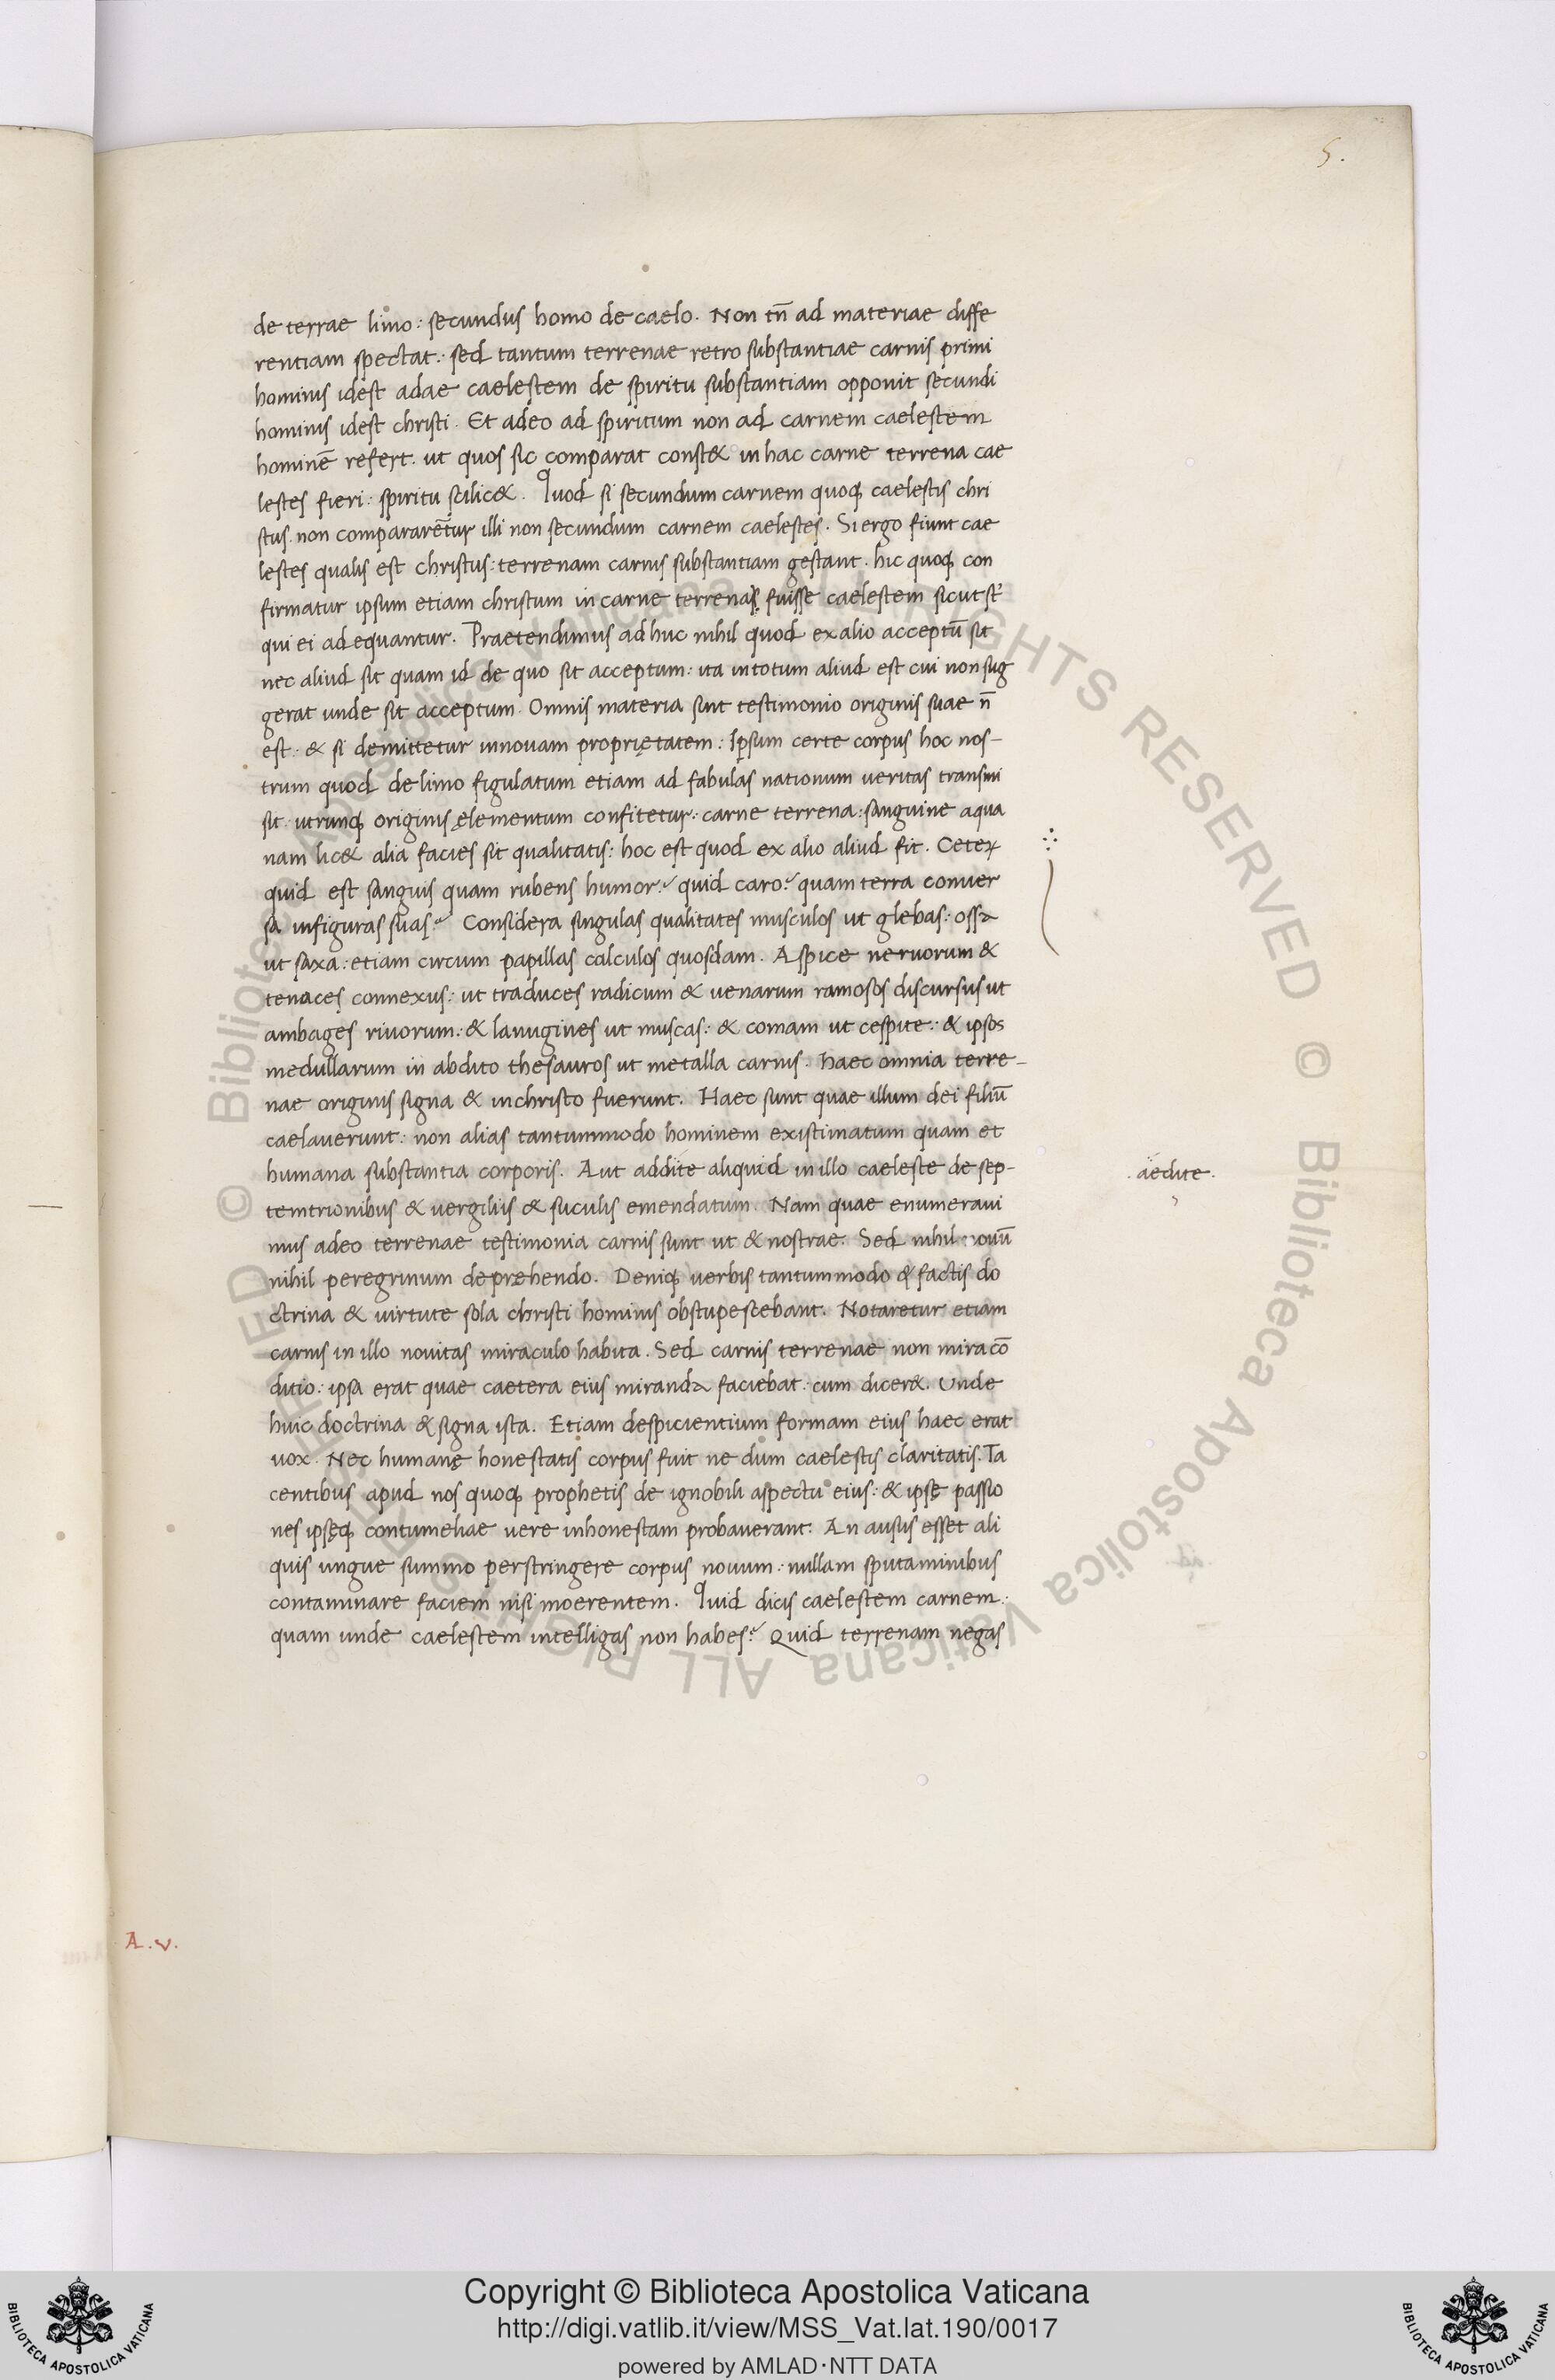 5.
de terrae limo: secundus homo de caelo. Non tn̄ ad materiae diffe
rentiam spectat: sed tantum terrenae retro substantiae carnis primi
hominis idest adae caelestem de spiritu substantiam opponit secundi
hominis idest christi. Et adeo ad spiritum non ad carnem caelestem
hominē refert. ut quos sic comparat const& in hac carne terrena cae
lestes fieri: spiritu scilic&. Quod si secundum carnem quoq; caelestis chri
stus. non compararētur illi non secundum carnem caelestes. Si ergo fiunt cae
lestes qualis est christus: terrenam carnis substantiam gestant. hic quoq; con
firmatur ipsum etiam christum in carne terrenas fuisse caelestem sicut st̄
qui ei adequantur. Praetendimus ad huc nihil quod ex alio acceptū sit
nec aliud sit quam id de quo sit acceptum: ita in totum aliud est cui non sug
gerat unde sit acceptum. Omnis materia sint testimonio originis suae n̄
est: & si demittetur in novam proprietatem: Ipsum certe corpus hoc nos-
trum quod de limo figulatum etiam ad fabulas nationum veritas transmi
sit. utrunq; originis ęlementum confitetur: carne terrena: sanguine aqua
nam lic& alia facies sit qualitatis: hoc est quod ex alio aliud fit. Ceteꝝ
quid est sanguis quam rubens humor? quid caro? quam terra conver
sa in figuras suas? Considera singulas qualitates musculos ut glebas: ossa
ut saxa: etiam circum papillas calculos quosdam. Aspice nervorum &
tenaces connexus: ut traduces radicum & venarum ramosos discursus ut
ambages rivorum: & lanugines ut muscas: & comam ut cespite: & ipsos
medullarum in abdito thesauros ut metalla carnis. haec omnia terre-
nae originis signa & in christo fuerunt. Haec sunt quae illum dei filiū
caelaverunt: non alias tantummodo hominem existimatum quam et
humana substantia corporis. Aut addite aliquid in illo caeleste de sep-
.aedite.
temtrionibus & vergiliis & suculis emendatum. Nam quae enumeravi
mus adeo terrenae testimonia carnis sunt ut & nostrae. Sed nihil novū
nihil peregrinum deprehendo. Deniq; verbis tantummodo & factis do
ctrina & virtute sola christi hominis obstupescebant. Notaretur etiam
carnis in illo novitas miraculo habita. Sed carnis terrenae non mira cō
ditio: ipsa erat quae caetera eius miranda faciebat: cum dicer&. Unde
huic doctrina & signa ista. Etiam despicientium formam eius haec erat
vox. Nec humanę honestatis corpus fuit ne dum caelestis claritatis. Ta
centibus apud nos quoq; prophetis de ignobili aspectu eius: & ipsę passio
nes ipsęq; contumeliae vere inhonestam probaverant: An ausus esset ali
quis ungue summo perstringere corpus novum: nullam sputaminibus
contaminare faciem nisi moerentem. Quid dicis caelestem carnem:
quam unde caelestem intelligas non habes? Quid terrenam negas
A.v.
© Biblioteca Apostolica Vaticana ALL RIGHTS RESERVED © Biblioteca Apostolica Vaticana ALL RIGHTS RESERVED
Copyright © Biblioteca Apostolica Vaticana
http://digi.vatlib.it/view/MSS_Vat.lat.190/0017
powered by AMLAD·NTT DATA
BIBLIOTECA APOSTOLICA VATICANA
BIBLIOTECA APOSTOLICA VATICANA